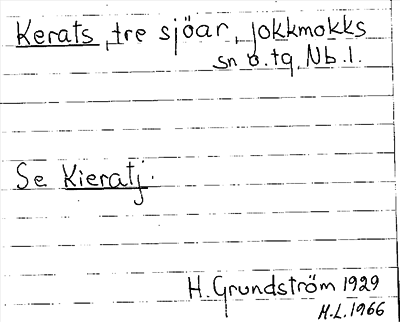 Kerats, tre sjöar, Jokkmokks
sn o. tg, Nb. l.
Se Kieratj.
H. Grundström 1929
H.L. 1966